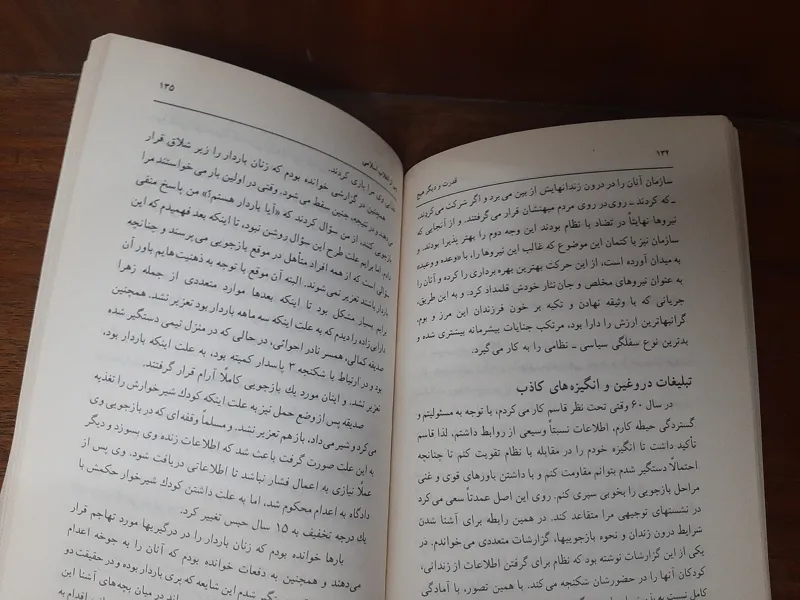 ۱۳۴
قدرت و دیگر هیچ
سازمان آنان را در درون زندانهایش از بین می برد و اگر شرکت می کردند
ـ که کردند ـ روی در روی مردم میهنشان قرار می گرفتند. و از آنجایی که
نیروها نهایتاً در تضاد با نظام بودند این وجه دوم را بهتر پذیرا بودند. و
سازمان نیز با کتمان این موضوع که غالب این نیروها را، با «وعده و وعید»
به میدان آورده است، از این حرکت بهترین بهره برداری را کرده و آنان را
به عنوان نیروهای مخلص و جان نثار خودش قلمداد کرد. و به این طریق،
جریانی که با وثیقه نهادن و تکیه بر خون فرزندان این مرز و بوم،
گرانبهاترین ارزش را دارا بود، مرتکب جنایات بیشرمانه بیشتری شده و
بدترین نوع سفلگی سیاسی ـ نظامی را به کار می گیرد.
تبلیغات دروغین و انگیزه های کاذب
در سال ۶۰ وقتی تحت نظر قاسم کار می کردم، با توجه به مسئولیتم و
گستردگی حیطه کارم، اطلاعات نسبتاً وسیعی از روابط داشتم، لذا قاسم
تأکید داشت تا انگیزه خودم را در مقابله با نظام تقویت کنم تا چنانچه
احتمالاً دستگیر شدم بتوانم مقاومت کنم و با داشتن باورهای قوی و غنی
مراحل بازجویی را بخوبی سپری کنم. روی این اصل عمدتاً سعی می کرد
در نشستهای توجیهی مرا متقاعد کند. در همین رابطه برای آشنا شدن
شرایط درون زندان و نحوه بازجوییها، گزارشات متعددی می خواندم. در
یکی از این گزارشات نوشته بود که نظام برای گرفتن اطلاعات از زندانی،
کودکان آنها را در حضورشان شکنجه می کند. با همین تصور، با آمادگی
کامل نسبت به
۱۳۵
پس از انقلاب اسلامی
وی مرا یاری کردند.
همچنین در گزارشی خوانده بودم که زنان باردار را زیر شلاق قرار
می دهند و در نتیجه، جنین سقط می شود. وقتی در اولین بار می خواستند مرا
بازجویی کنند، از من سؤال کردند که «آیا باردار هستم؟» من پاسخ منفی
دادم. اما برایم علت طرح این سؤال روشن نبود، تا اینکه بعد فهمیدم که این
سؤالی است که از همه افراد متأهل در موقع بازجویی می پرسند و چنانچه
باردار باشند تعزیر نمی شوند. البته آن موقع با توجه به ذهنیت هایم باور آن
برایم بسیار مشکل بود تا اینکه بعدها موارد متعددی از جمله زهرا
دارابی زاده را دیدم که به علت اینکه سه ماهه باردار بود تعزیر نشد. همچنین
صدیقه کمالی، همسر نادر اجوانی، در حالی که در منزل تیمی دستگیر شده
بود و در ارتباط با شکنجه ۳ پاسدار کمیته بود، به علت اینکه باردار بود،
تعزیر نشد، و اینان مورد یك بازجویی کاملاً آرام قرار گرفتند.
صدیقه پس از وضع حمل نیز به علت اینکه کودك شیرخوارش را تغذیه
می کرد و شیر می داد، باز هم تعزیر نشد. و مسلماً وقفه ای که در بازجویی وی
به این علت صورت گرفت باعث شد که اطلاعات زنده وی بسوزد و دیگر
عملاً نیازی به اعمال فشار نباشد تا اطلاعاتی دریافت شود. وی پس از
دادگاه به اعدام محکوم شد، اما به علت داشتن کودك شیرخوار حکمش با
یك درجه تخفیف به ۱۵ سال حبس تغییر کرد.
بارها خوانده بودم که زنان باردار را در درگیریها مورد تهاجم قرار
می دهند و همچنین به دفعات خوانده بودم که آنان را به جوخه اعدام
دستگیر شدم این شایعه که پری باردار بوده و در حقیقت دو
در میان بچه های آشنا این